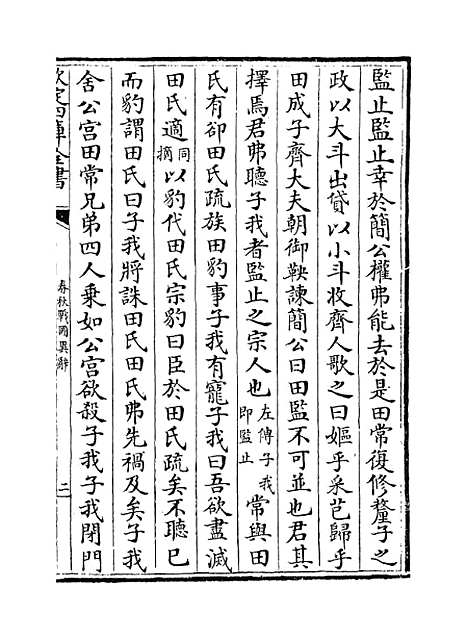 監止監止幸於簡公權弗能去於是田常復修釐子之
政以大斗出貸以小斗收齊人歌之曰嫗乎采芑歸乎
田成子齊大夫朝御鞅諫簡公曰田監不可並也君其
擇焉君弗聽子我者監止之宗人也左傳子我即監止常與田
氏有卻田氏疏族田豹事子我有寵子我曰吾欲盡滅
田氏適同摘以豹代田氏宗豹曰臣於田氏疏矣不聽已
而豹謂田氏曰子我將誅田氏田氏弗先禍及矣子我
舍公宫田常兄弟四人乘如公宫欲殺子我子我閉門
欽定四庫全書
春秋戰國異辭
二